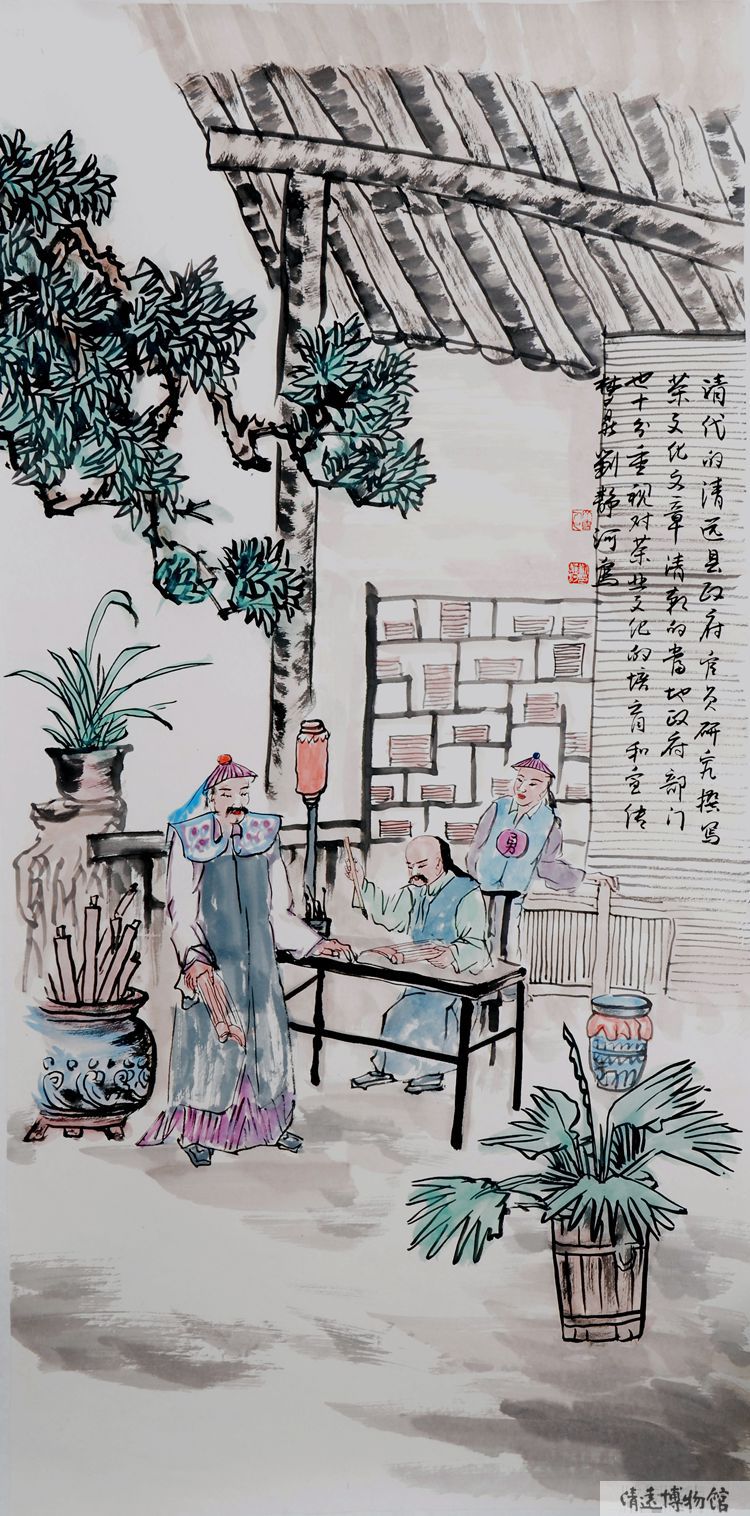 清代的清远县政府官员研究撰写
茶文化文章清朝的当地政府部门
也十分重视对茶业文化的培育和宣传
刘静河
勇
清远博物馆